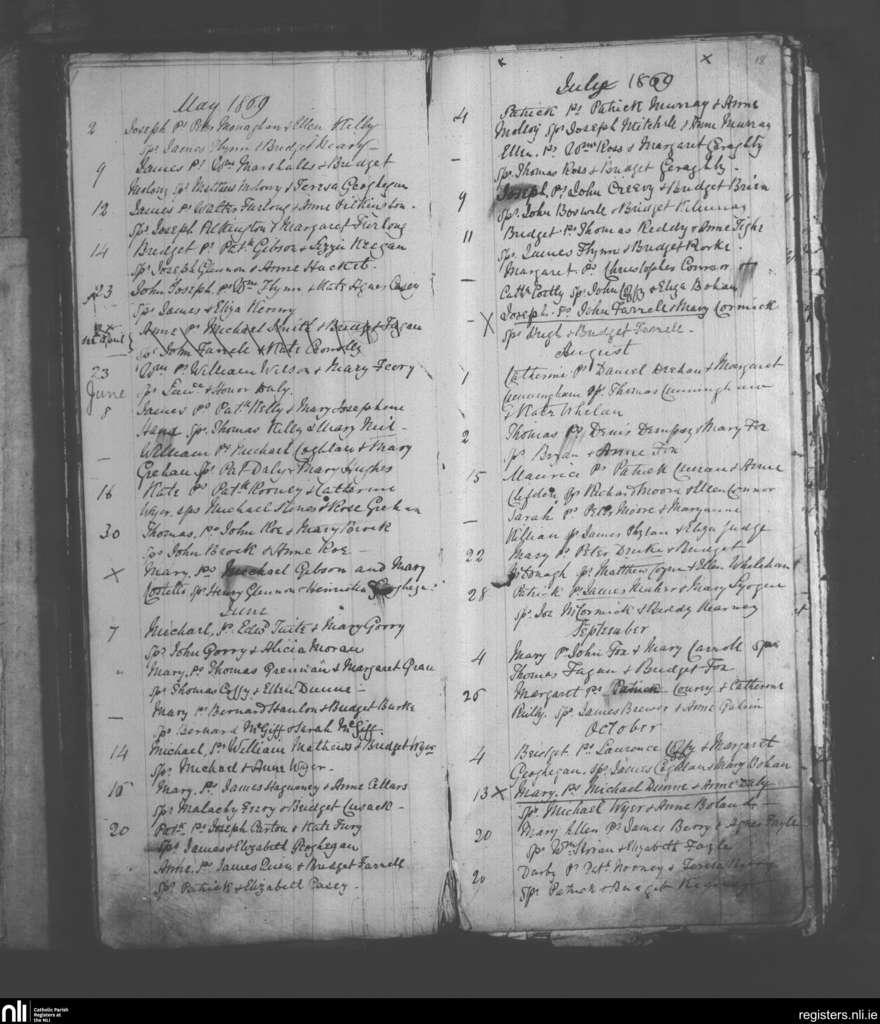 May 1869
2 Joseph Ps Peter Monaghan & Ellen Kelly
Sps James Flynn & Bridget Neary
9 James Ps Wm Marshall & Bridget
Malony Sps Matthew Malony & Teresa Geoghegan
12 James Ps Walter Furlong & Anne
Sps Joseph Pilkington & Margaret Furlong
14 Bridget Ps Patk Gibson & Lizzie Keegan
Sps Joseph Glennon & Anne Hacket
23 John Joseph Ps Wm Flynn & Kate Agnes Casey
Sps James & Eliza Kenny
1st April Anne Ps Michael Smith & Bridget Fagan
Sps John Farrell & Kate Connolly
23 Wm Ps William Wilson & Mary
Sps & Honor Daly.
June
8 James Ps Patk Kelly & Mary Josephine
Sps Thomas Kelly & Mary
— William Ps Michael Coghlan & Mary
Sps Pat Daly & Mary Hughes
16 Kate Ps Patk Rooney & Catherine
Wyer, Sps Michael & Rose
30 Thomas, Ps John Roe & Mary Brock
Sps John Brock & Anne Roe —
X Mary, Ps Michael Gibson and Mary
Costello Sps Henry Glennon & Henrietta Geoghegan
June
7 Michael, Ps Edwd Tuite & Mary Gorry
Sps John Gorry & Alicia Moran
" Mary, Ps Thomas Grennan & Margaret
Sps Thomas Coffy & Ellen Dunne —
— Mary Ps Bernard Hanlon & Budget Burke
Sps Bernard McGiff & Sarah McGiff.
14 Michael, Ps William Mathews & Budget Wyer
Sps Michael & Anne Wyer.
16 Mary, Ps James & Anne Cellars
Sps Malachy & Budget Cusack —
20 Patk. Ps Joseph Carton & Kate
Sps James & Elizabeth Geoghegan
Anne, Ps James & Bridget Farrell
Sps Patrick & Elizabeth Casey —
18
July 1869
4 Patrick Ps Patrick Murray & Anne
Molloy Sps Joseph Mitchell & Anne Murray
— Ellen, Ps Wm Ross & Margaret Geraghty
Sps Thomas Ross & Bridget Geraghty —
9 Joseph, Ps John Creevy & Budget Brien
Sps John & Bridget
11 Budget Ps Thomas Reddy & Anne Tighe
Sps James Flynn & Budget Rorke.
— Margaret Ps Christopher Connor &
Cath Sps John Coffy & Eliza Bohan
X Joseph Ps John Farrell & Mary Cormick
Sps Hugh & Budget Farrell —
August
1 Catherine Ps Daniel & Margaret
Cunningham Sps Thomas Cunningham
& Kate Whelan
2 Thomas Ps Denis Dempsey & Mary Fox
Sps Bryan & Anne Fox
15 Maurice Ps Patrick Curran & Anne
Sps Richard Moore & Ellen Connor
— Sarah Ps Peter Moore & Maryanne
Sps James Phylan & Eliza Judge
22 Mary Ps Peter & Budget
McDonagh Sps Matthew Coyne & Ellen Whelehan
28 Patrick Ps James & Mary
Sps Joe McCormick & Biddy Kearney
September
4 Mary Ps John Fox & Mary Carroll Sps
Thomas Fagan & Budget Fox
26 Margaret Ps Patrick & Catherine
Reilly. Sps James Brewer & Anne Galvin
October
4 Bridget Ps Laurence Coffy & Margaret
Geoghegan, Sps James Coghlan & Mary Bohan
13 X Mary. Ps Michael Dunne & Anne Daly
Sps Michael Wyer & Anne Bolan
20 Mary Ellen Ps James Berry & Agnes Fayle
Sps Wm & Elizabeth Fayle
20 Darby Ps Patk Rooney & Teresa
Sps Patrick & Bridget
nli Catholic Parish Registers at the NLI
registers.nli.ie